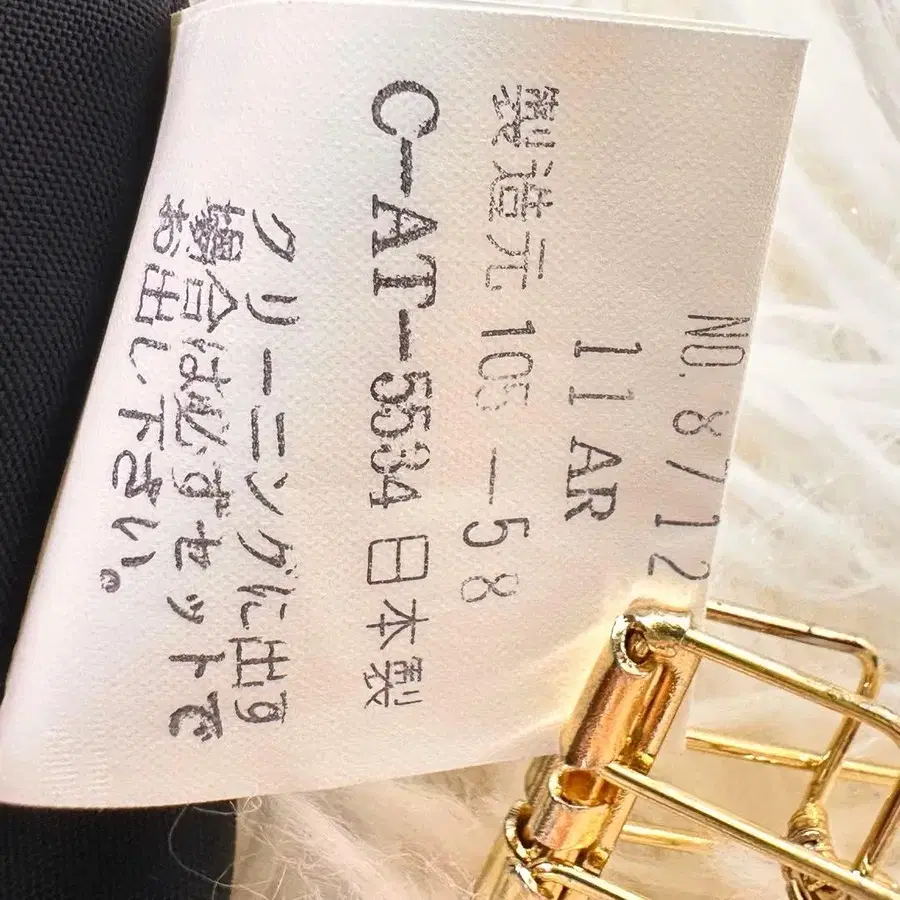 NO. 8712
11 AR
製造元 105 — 58
C—AT—5534 日本製
クリーニングに出す
場合は必ずセットで
お出し下さい。